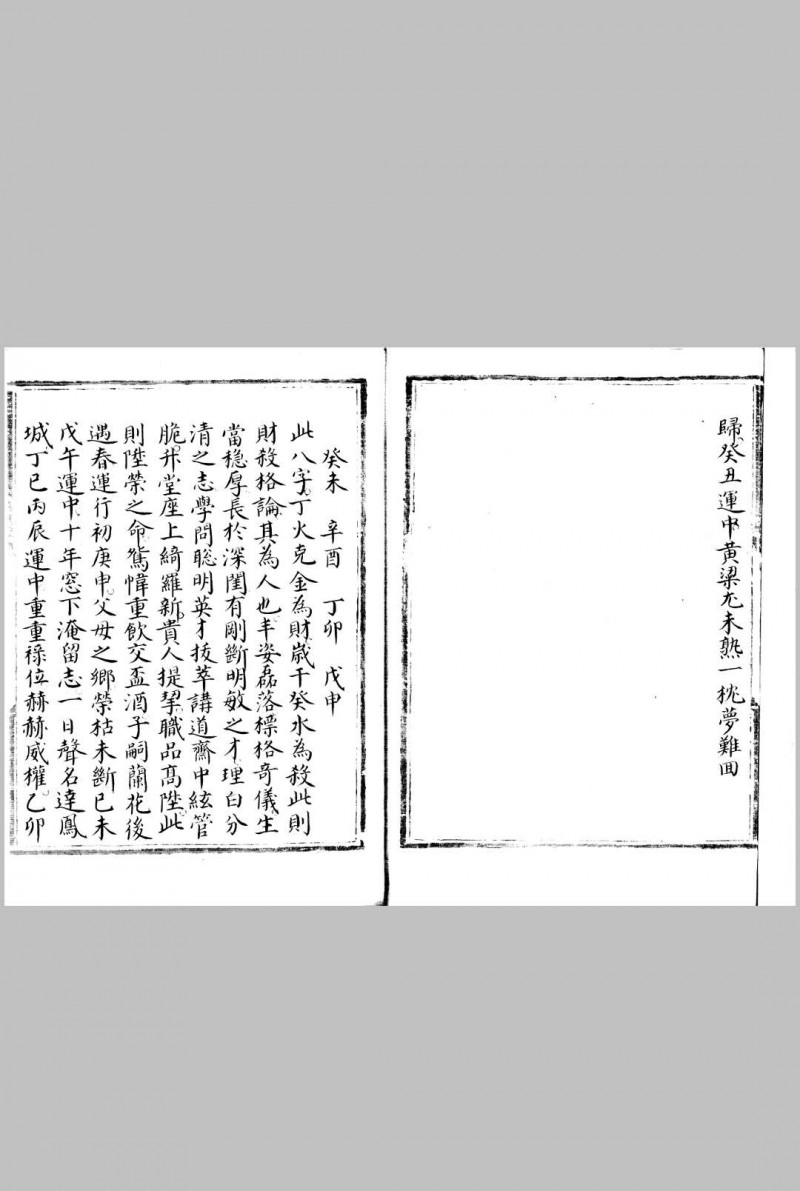 歸癸丑運中黃梁尤未熟一枕夢難回
癸未　辛酉　丁卯　戊申
此八字丁火克金為財歲干癸水為殺此則
財殺格論其為人也丰姿磊落標格奇儀生
當稳厚長於深閨有剛斷明敏之才理白分
清之志學問聡明英才拔萃講道齋中絃管
脆升堂座上綺羅新貴人提挈職品高陞此
則陞榮之命鴛幃重飲交盃酒子嗣蘭花後
遇春運行初庚申父母之鄉榮枯未斷已未
戊午運中十年窓下淹留志一日聲名達鳳
城丁巳丙辰運中重重祿位赫赫威權乙卯